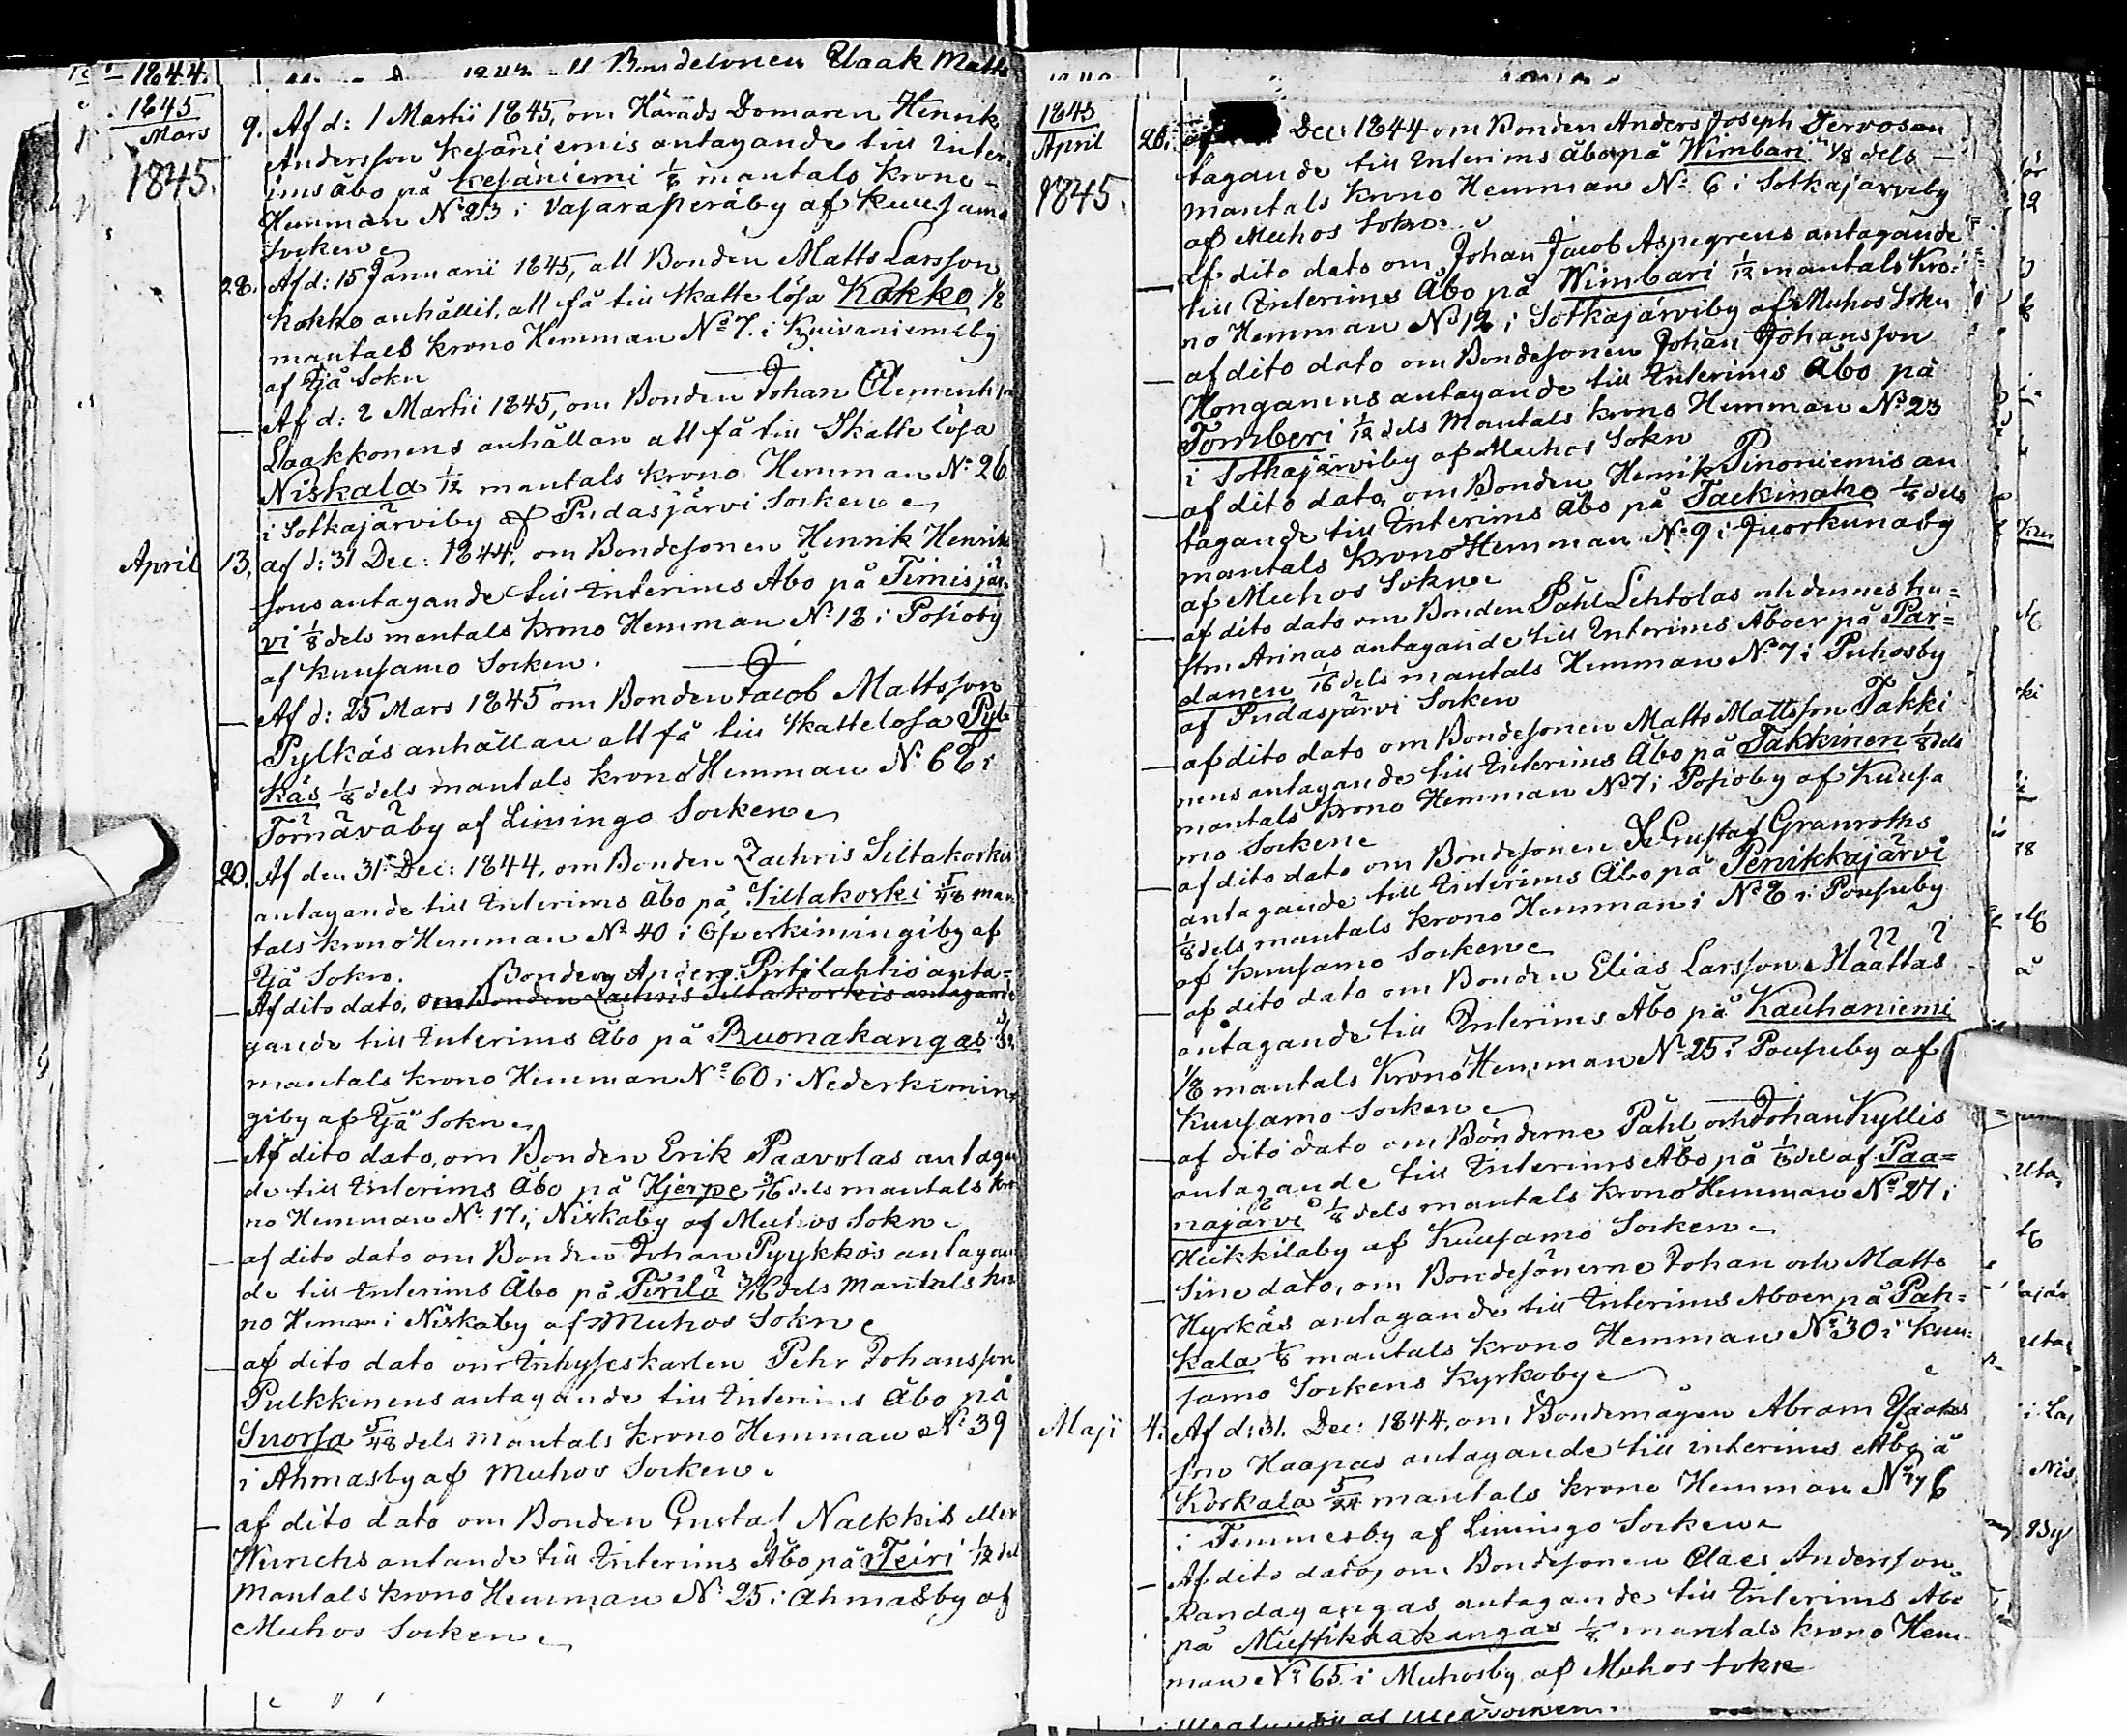 1844.
Bondesonen Isaak Matts
1845
Mars
1845.
9. Af d: 1 Martii 1845, om Härads Domaren Henrik
Andersson Kesäniemis antagande till Inter,
ims Åbo på Kesäniemi 1/8 mantals Krono-
Hemman No 23 i Vasaraperäby af Kuusamo
Socken
28. Af d: 15 Januarii 1845, att Bonden Matts Larsson
Kokko anhållit, att få till skatte lösa Kokko 1/8
mantals krono Hemman No 7. i Kuivaniemiby
af Ijå Sokn
— Af d: 2 Martii 1845, om Bonden Johan Clements
Laakkonens anhållan att få till Skatte lösa
Niskala 1/12 mantals krono Hemman No 26
i Sotkajärviby af Pudasjärvi Socken
April 13. af d: 31 Dec: 1844, om Bondesonen Henrik Henriks
sons antagande till interims Åbo på Timisjär-
vi 1/8 dels mantals krono Hemman No 18 i Posioby
af Kuusamo Socken.
— Af d: 25 Mars 1845 om Bonden Jacob Mattsson
Pylkäs anhållan att få till skattelösa Pyl-
käs 1/8 dels mantals krono Hemman No 62 i
Törnäväby af Limingo Socken
20. Af den 31 Dec: 1844, om Bonden Zachris Siltakoskis
antagande till Interims Åbo på Siltakoski 5/48 man
tals krono Hemman No 40 i Öfverkimingiby af
Ijå Sokn. Bonden Anders Putilahtis anta-
— Af dito dato, om Bonden Zachris Siltakoskis antagande
gande till Interims Åbo på Ruonakangas
mantals krono Hemman No 60 i Nederkimin-
giby af Ijå Sokn
— Af dito dato, om Bonden Erik Paavolas antagan
de till Interims Åbo på Hjerpe 3/16 dels mantals kro
no Hemman No 17 i Niskaby af Muhos Sokn
— af dito dato om Bonden Johan Pyykkös antagan
de till Interims Åbo på Pirilä 3/16 dels Mantals kro
no Hemn i Niskaby af Muhos Sokn
— af dito dato om Inhyseskarlen Pehr Johansson
Pulkkinens antagande till Interims Åbo på
Suorsa 5/48 dels mantals krono Hemman No 39
i Ahmasby af Muhos Socken.
— af dito dato om Bonden Gustaf Nalkkils eller
Wunchs antande till Interims Åbo på Teiri 1/12 del
Mantals krono Hemman No 25 i Ahmasby af
Muhos Socken
1845
April
1845.
26. af Dec: 1844 om Bonden Anders Joseph Tervos an
tagande till Interims åbo på Wimbari 1/8 dels —
mantals krono Hemman No 6 i Sotkajärviby
af Muhos Sokn.
— af dito dato om Johan Jacob Aspegrens antagande
till Interims Åbo på Wimbari 1/12 mantals kro-
no Hemman No 12 i Sotkajärviby af Muhos Sokn
— af dito dato om Bondesonen Johan Johansson
Honganens antagande till Interims Åbo på
Tomberi 1/12 dels Mantals krono Hemman No 23
i Sotkajärviby af Muhos Sokn
— af dito dato, om Bonden Henrik Pinoniemis an
tagande till Interims Åbo på Tackinaho 1/8 dels
mantals krono Hemman No 9 i Juorkunaby
af Muhos Sokn
— af dito dato om Bonden Påhl Lehtolas och dennes hu-
stru Annas antagande till Interims Åboer på Par-
danen 1/16 dels mantals Hemman No 7 i Puhosby
af Pudasjärvi Socken
— af dito dato om Bondesonen Matts Mattsson Takki
nens antagande till Interims Åbo på Takkinen 1/8 dels
mantals krono Hemman No 7 i Posioby af Kuusa
mo Socken
— af dito dato om Bondesonen Gustaf Granroths
antagande till Interims Åbo på Penikkajärvi
1/8 dels mantals krono Hemman i No 8 i Poussuby
af Kuusamo Socken
— af dito dato om Bonden Elias Larsson Määttäs
antagande till Interims Åbo på Kauhaniemi
1/8 mantals Krono Hemman No 25 i Poussuby af
Kuusamo Socken
— af dito dato om Bönderne Påhl och Johan Kyllis
antagande till Interims Åbo på del af Paa-
najärvi 1/8 dels mantals krono Hemman No 27 i
Heikkiläby af Kuusamo Socken
— Sine dato, om Bondesönerne Johan och Matts
Hyrkäs antagande till Interims Åboer på Pah-
kala 1/8 mantals krono Hemman No 30 i Kuu-
samo Sockens Kyrkoby
Maji 4. Af d: 31. Dec: 1844, om Bondemågen Abram Isaaks
son Haapas antagande till interims Åbo å
Korkala 5/24 mantals krono Hemman No 76
i Temmesby af Limingo Socken
— Af dito dato, om Bondesonen Claes Andersson
Randagangas antagande till Interims Åbo
på Mustikkakangas 1/8 mantals krono Hem
man No 65 i Muhosby af Muhos Sokn